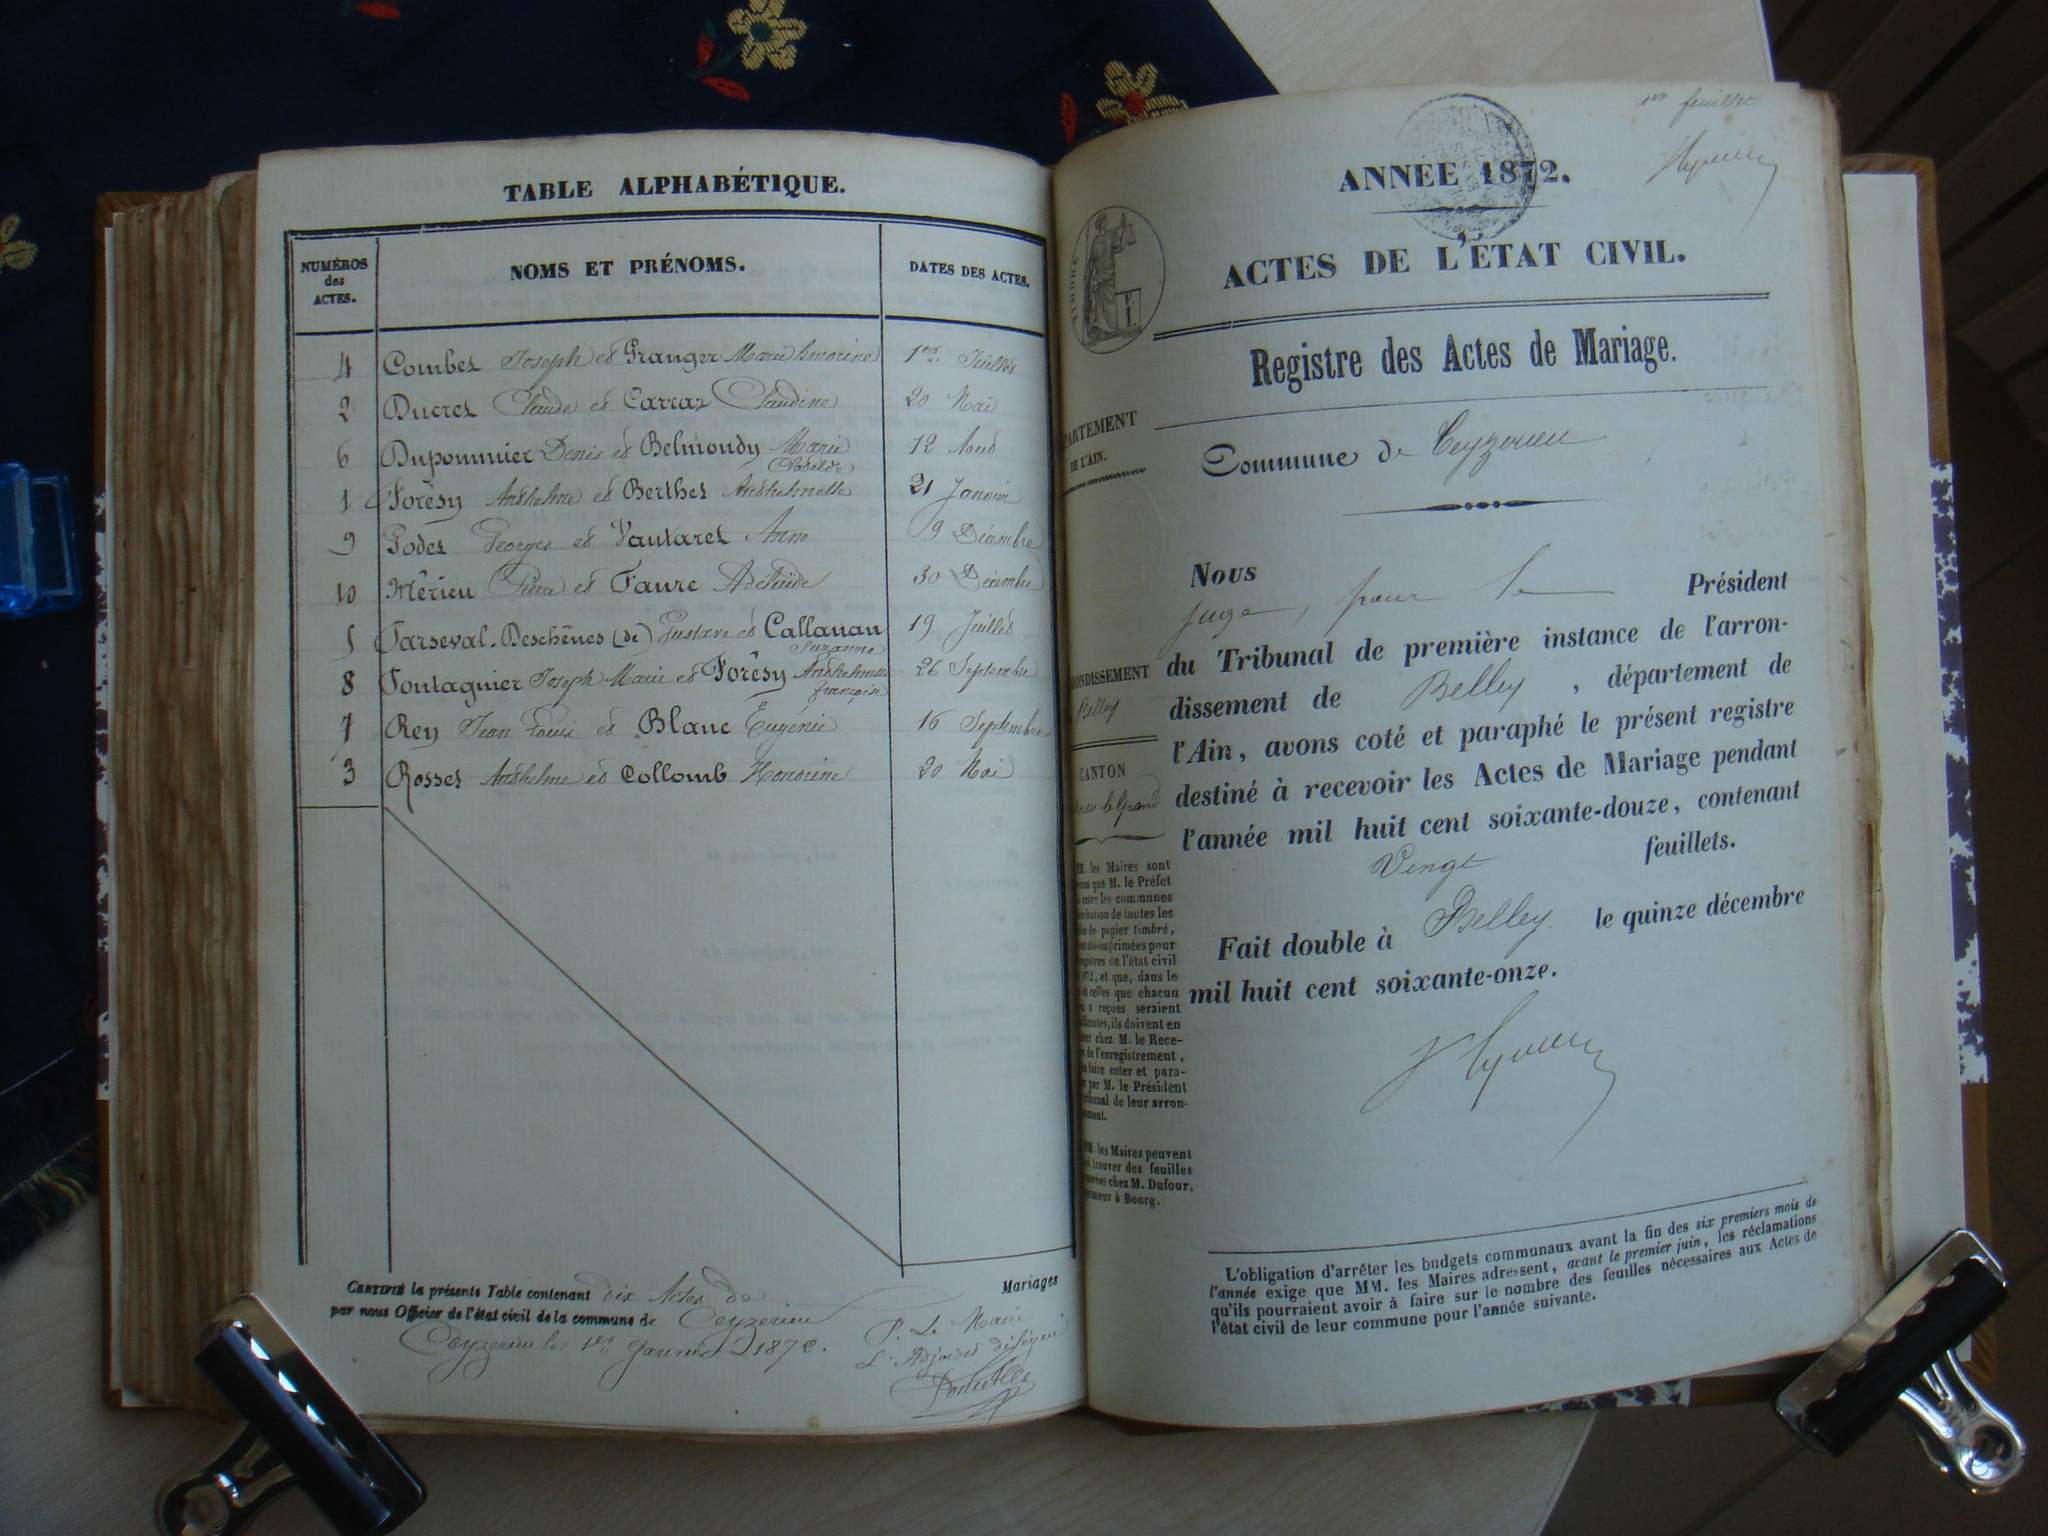 TABLE ALPHABÉTIQUE.
NUMÉROS des ACTES. NOMS ET PRÉNOMS. DATES DES ACTES.
4 Combet Joseph et Granger Marie honorine 1er Juillet
2 Ducret Claude et Carraz Claudine 20 Mai
6 Dupommier Denis et Belmondy Marie Clotilde 12 Août
1 Forêsy Anthelme et Berthet Anthelmette 21 Janvier
9 Godet Georges et Vautaret Anne 9 Décembre
10 Mêrieu Pierre et Faure Adelaïde 30 Décembre
5 Parseval-Deschênes (de) Gustave et Callanan Suzanne 19 Juillet
8 Pontagnier Joseph Marie et Forêsy Anthelmette françoise 26 Septembre
7 Rey Jean Louis et Blanc Eugénie 16 Septembre
3 Rosset Anthelme et Collomb Honorine 20 Mai
CERTIFIÉ la présente Table contenant dix Actes de Mariages
par nous Officier de l'état civil de la commune de Ceyzerieu
Ceyzerieu le 1er Janvier 1872.
P. Le Maire
L'Adjoint délégué
1er feuillet
ANNÉE 1872.
ACTES DE L'ÉTAT CIVIL.
TIMBRE
Registre des Actes de Mariage.
DE L'AIN.
Commune de Ceyzerieu
Nous
juge, pour le Président
du Tribunal de première instance de l'arron-
dissement de Belley, département de
l'Ain, avons coté et paraphé le présent registre
destiné à recevoir les Actes de Mariage pendant
l'année mil huit cent soixante-douze, contenant
Vingt feuillets.
Fait double à Belley le quinze décembre
mil huit cent soixante-onze.
Belley
CANTON
le Grand
MM. les Maires sont
que M. le Préfet
entre les communes
de toutes les
de papier timbré,
imprimées pour
registres de l'état civil
1872, et que, dans le
celles que chacun
reçues seraient
ils doivent en
chez M. le Rece-
de l'enregistrement,
faire coter et para-
par M. le Président
tribunal de leur arron-
MM. les Maires peuvent
trouver des feuilles
chez M. Dufour,
à Bourg.
L'obligation d'arrêter les budgets communaux avant la fin des six premiers mois de
l'année exige que MM. les Maires adressent, avant le premier juin, les réclamations
qu'ils pourraient avoir à faire sur le nombre des feuilles nécessaires aux Actes de
l'état civil de leur commune pour l'année suivante.